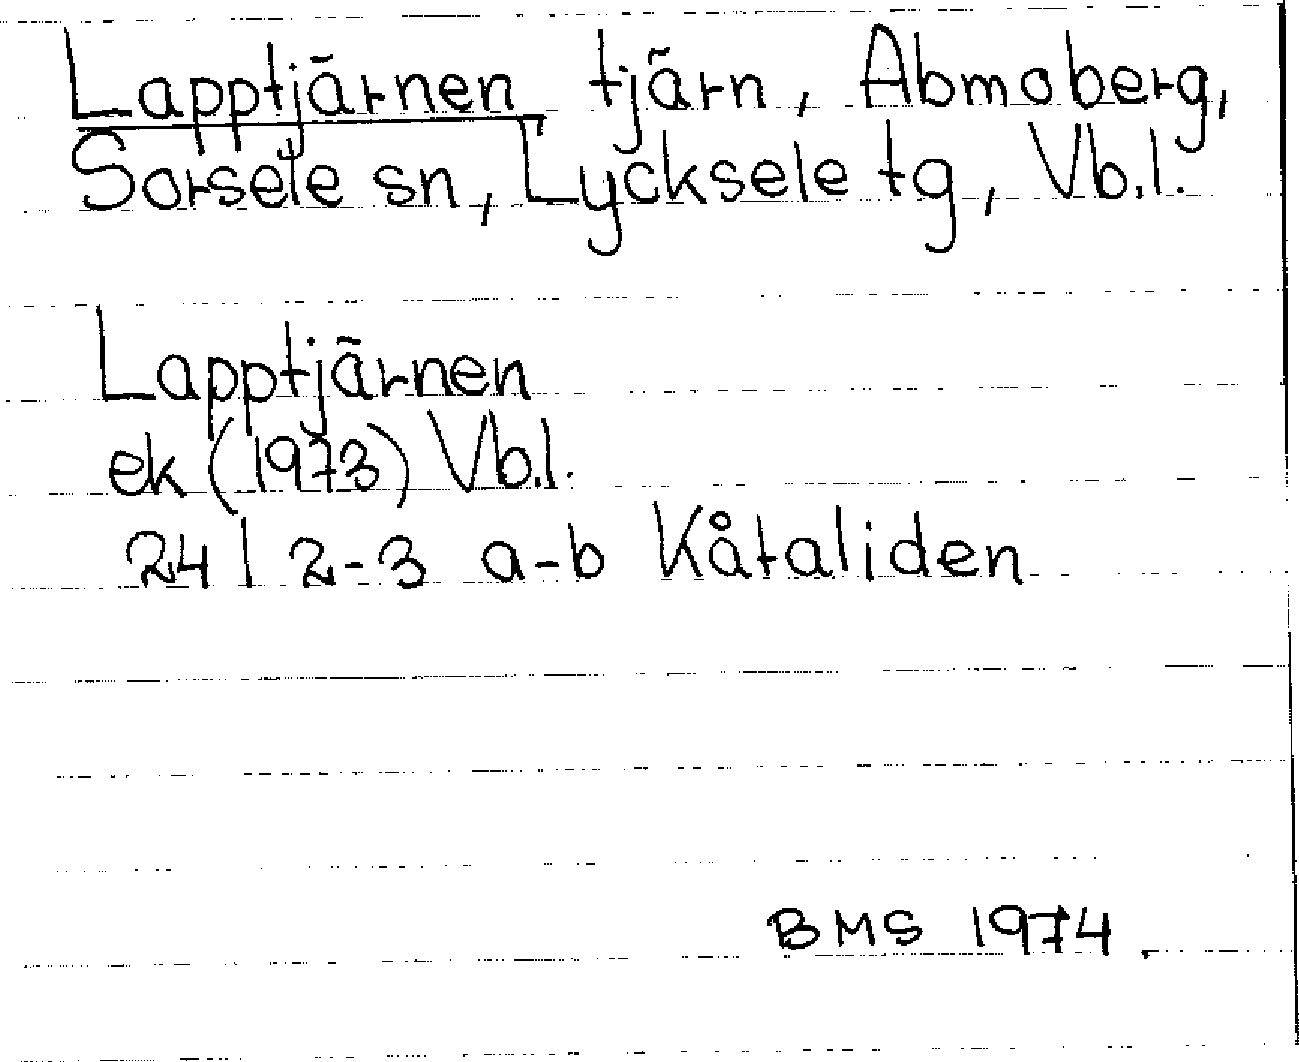 Lapptjärnen tjärn, Abmoberg,
Sorsele sn, Lycksele tg, Vb.l.
Lapptjärnen
ek (1973) Vb.l.
24 I 2-3 a-b Kåtaliden
BMS 1974